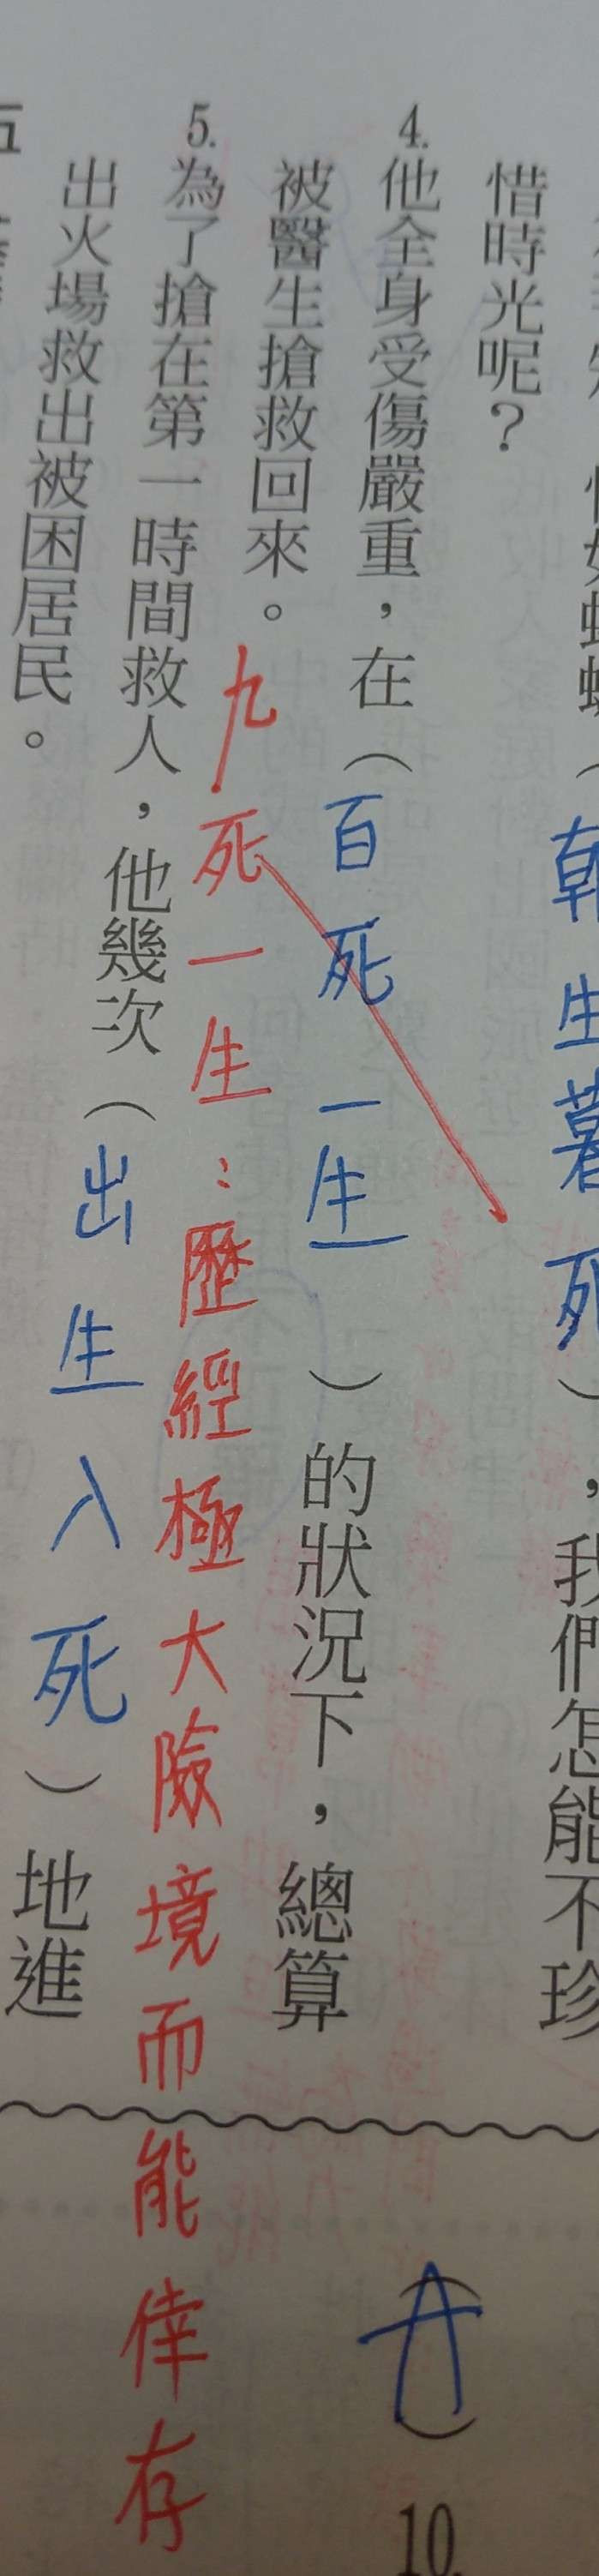 朝生暮死），我們怎能不珍
惜時光呢？
4.他全身受傷嚴重，在（百死一生）的狀況下，總算
被醫生搶救回來。
九死一生：歷經極大險境而能倖存
5.為了搶在第一時間救人，他幾次（出生入死）地進
出火場救出被困居民。
五
10.